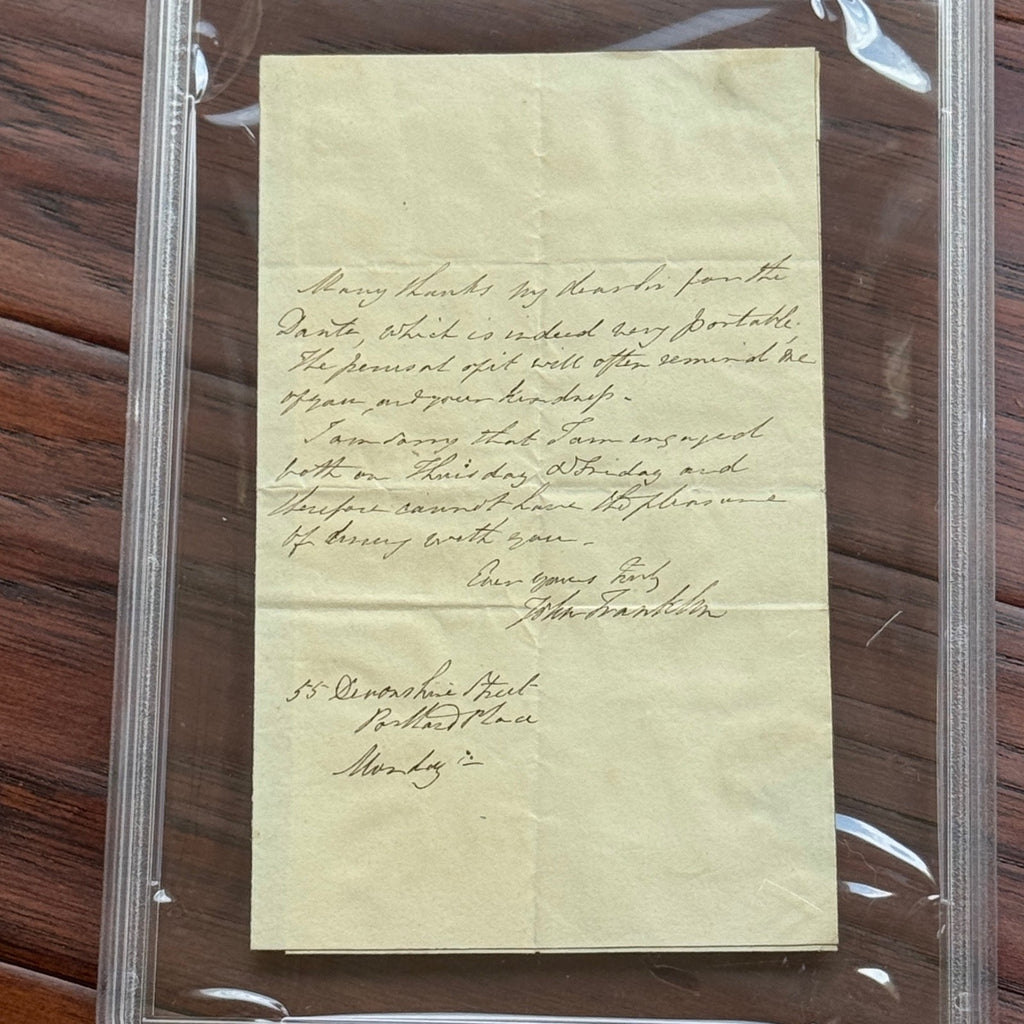 Many thanks my dear Sir for the
Dante, which is indeed very portable.
The perusal of it will often remind me
of you and your kindness.
I am sorry that I am engaged
both on Thursday & Friday and
therefore cannot have the pleasure
of dining with you.
Ever yours truly
John Franklin
55 Devonshire Street
Portland Place
Monday